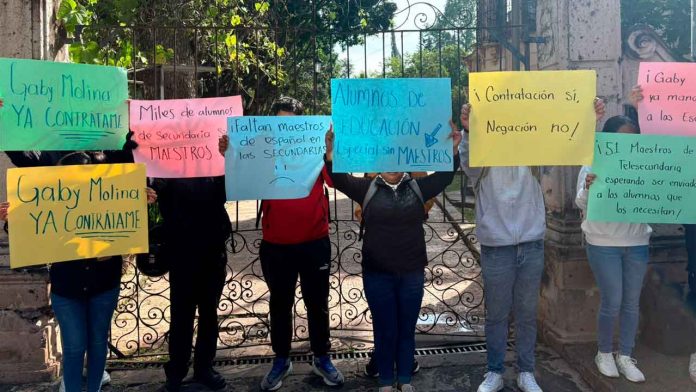 Gaby Molina
YA CONTRÁTAME
Gaby Molina
YA CONTRÁTAME
Miles de alumnos
de secundaria sin
MAESTROS
¡faltan maestros
de español en
las SECUNDARIAS
Alumnos DE
EDUCACIÓN
Especial sin MAESTROS
¡Contratación sí,
Negación no!
¡Gaby
ya man
a las Esc
¡51 Maestros de
Telesecundaria
esperando ser enviad
a los alumnos que
los necesitan!